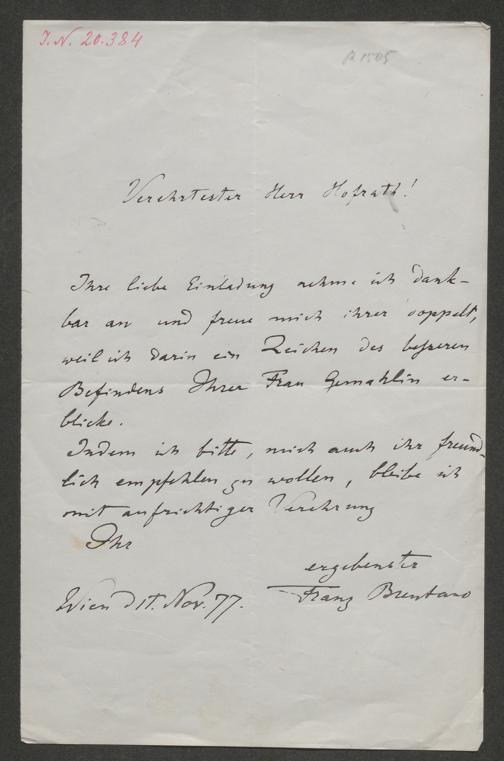 J. N. 20.384
Verehrtester Herr Hofrath!
Ihre liebe Einladung nehme ich dank-
bar an und freue mich ihrer doppelt,
weil ich darin ein Zeichen des besseren
Befindens Ihrer Frau Gemahlin er-
blicke.
Indem ich bitte, mich auch ihr freund-
lich empfehlen zu wollen, bleibe ich
mit aufrichtiger Verehrung
Ihr
ergebenster
Franz Brentano
Wien d Nov. 77.